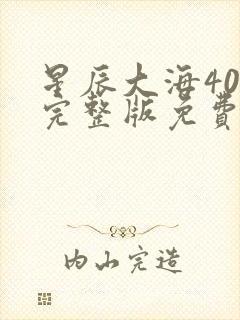 星辰大海40
完整版免费
内山完造